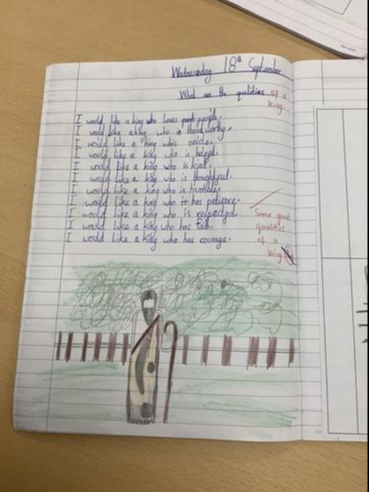 Wednesday 18th September
What are the qualities of a
king.
I would like a king who loves people.
I would like a king who is trustworthy.
I would like a king who is
I would like a king who is helpful.
I would like a king who is kind.
I would like a king who is thoughtful.
I would like a king who is humble.
I would like a king who has patience.
I would like a king who is respected.
I would like a king who has faith.
I would like a king who has courage.
Some good
qualities
of a
king